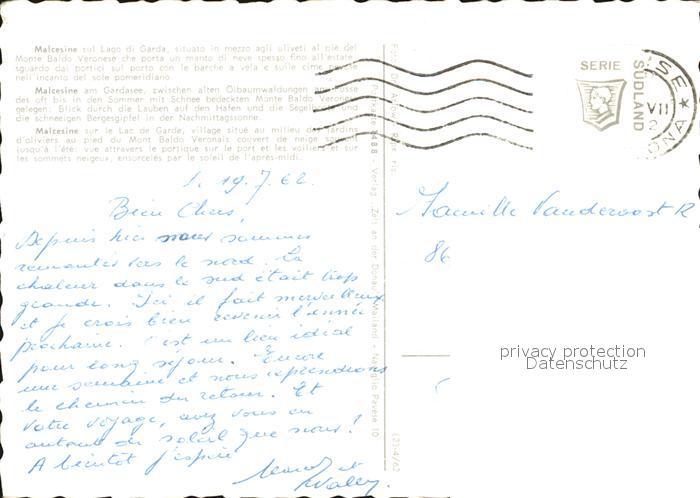 Malcesine sul Lago di Garda, situato in mezzo agli uliveti al pie del
Monte Baldo Veronese che porta un manto di neve spesso fino all'estate
sguardo dai portici sul porto con le barche a vela e sulle cime
nell'incanto del sole pomeridiano.
Malcesine am Gardasee, zwischen alten Ölbaumwaldungen am Fusse
des oft bis in den Sommer mit Schnee bedeckten Monte Baldo
gelegen: Blick durch die Lauben auf den Hafen und die
die schneeigen Bergesgipfel in der Nachmittagssonne.
Malcesine sur le Lac de Garda, village situé au milieu des jardins
d'oliviers au pied du Mont Baldo Veronais couvert de neige
jusqu'à l'été: vue attravers le portique sur le port et les voiliers et sur
les sommets neigeux, ensorcelés par le soleil de l'après-midi.
SERIE
SÜDLAND
VII
19.7.62
Bien Chers,
Depuis hier nous sommes
remontés vers le nord. La
chaleur dans le sud était trop
grande. Ici il fait merveilleux
et je crois bien revenir l'année
prochaine. C'est un lieu idéal
pour long séjour. Encore
une semaine et nous reprendrons
le chemin du retour. Et
votre voyage, avez vous eu
autant de soleil que nous!
A bientôt j'espère
et
Famille Vandervoort R
86
(2)4/62
privacy protection
Datenschutz